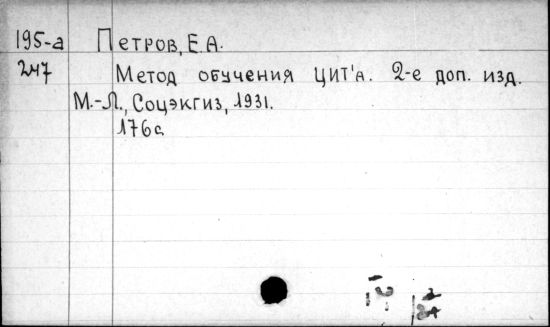 195-а Петров, Е.А.
247 Метод обучения ЦИТ'а. 2-е доп. изд.
М.-Л., Соцэкгиз, 1931.
176с.